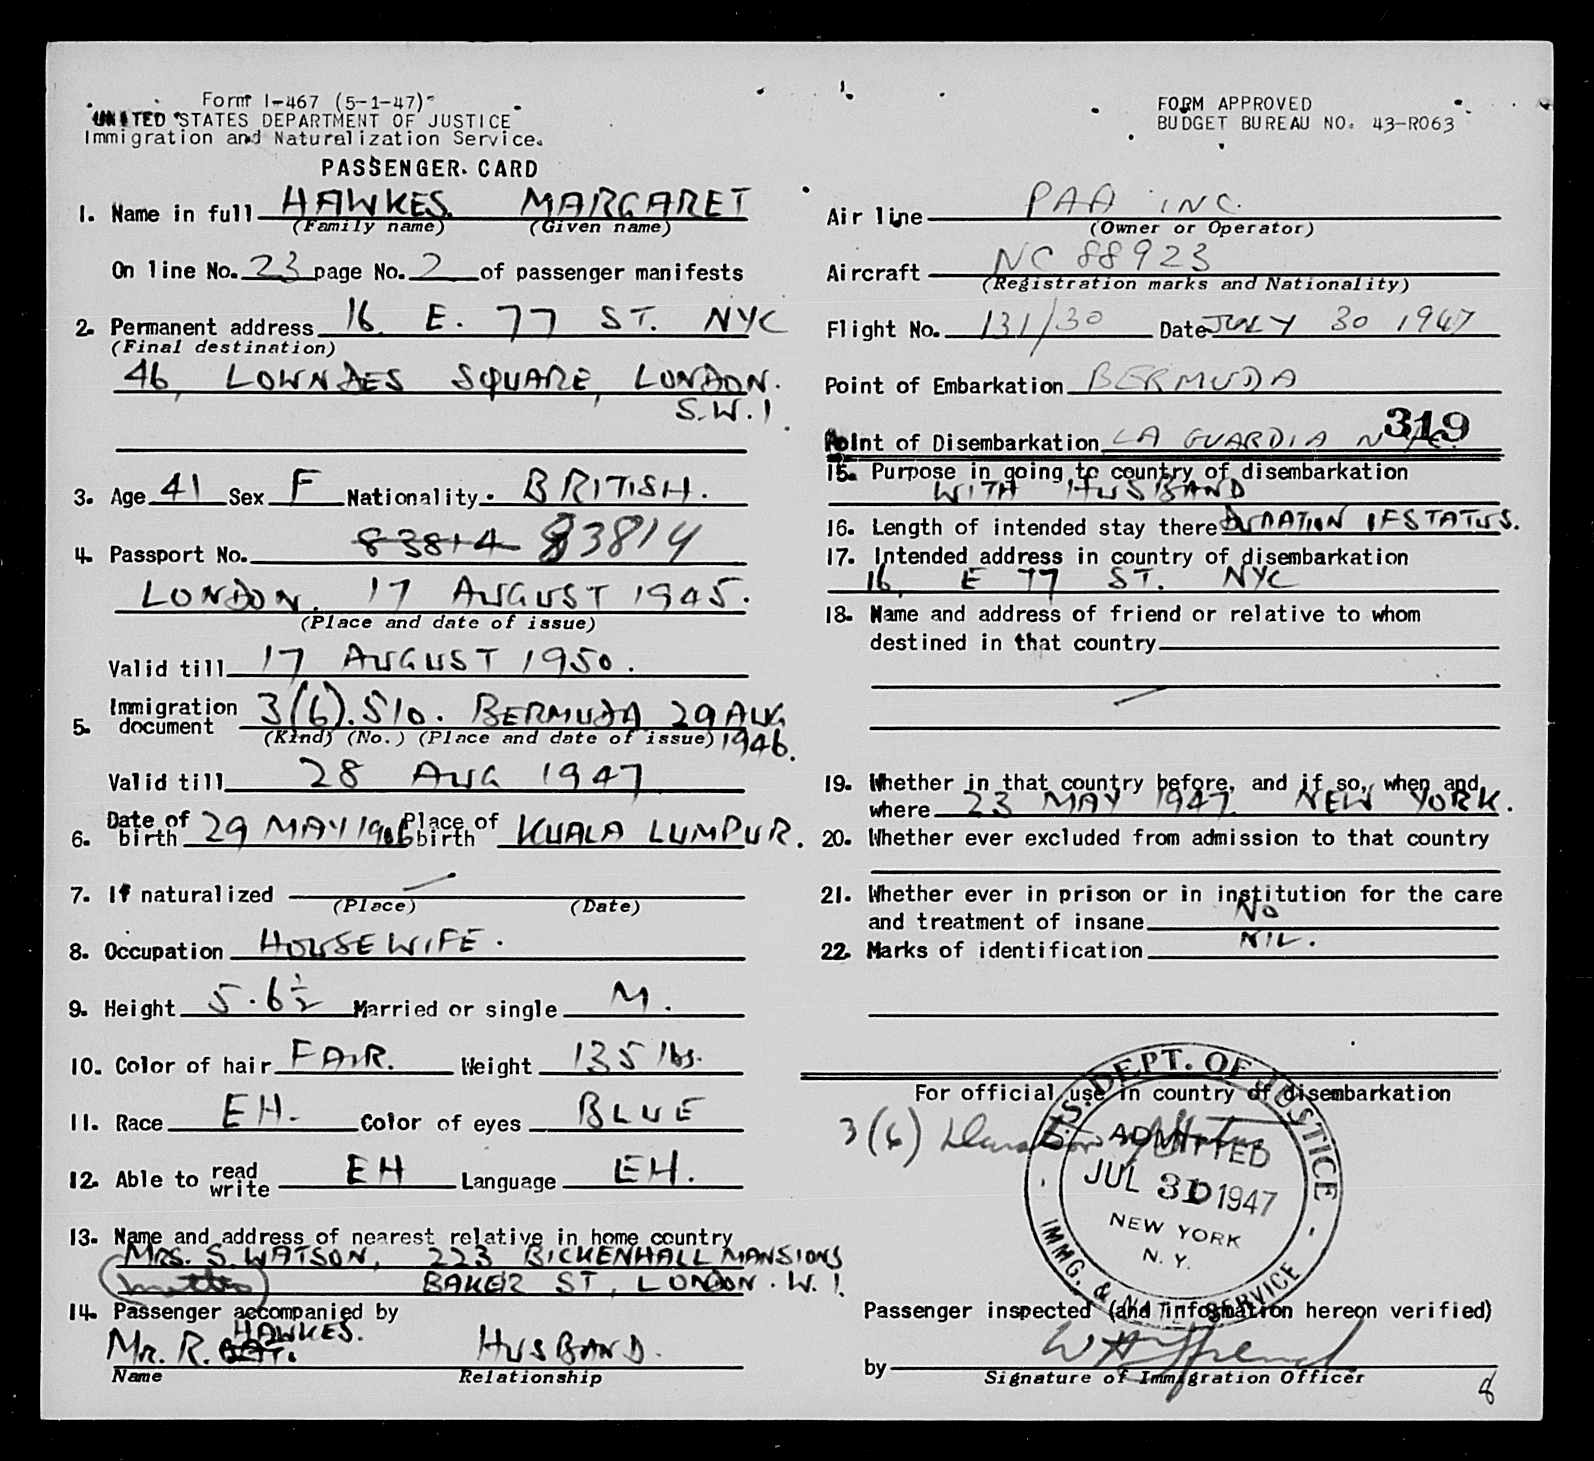 Form I-467 (5-1-47)
UNITED STATES DEPARTMENT OF JUSTICE
Immigration and Naturalization Service.
PASSENGER CARD
1. Name in full HAWKES. MARGARET
(Family name) (Given name)
On line No. 23 page No. 2 of passenger manifests
2. Permanent address 16 E. 77 ST. NYC
(Final destination)
46, LOWNDES SQUARE, LONDON.
S.W.1
3. Age 41 Sex F Nationality BRITISH.
4. Passport No. 83814 83814
LONDON. 17 AUGUST 1945.
(Place and date of issue)
Valid till 17 AUGUST 1950.
5. Immigration document 3(6). 510. BERMUDA 29 AUG 1946.
(Kind) (No.) (Place and date of issue)
Valid till 28 AUG 1947
6. Date of birth 29 MAY 1906 Place of birth KUALA LUMPUR.
7. If naturalized
(Place) (Date)
8. Occupation HOUSEWIFE.
9. Height 5.6½ Married or single M.
10. Color of hair FAIR. Weight 135 lbs.
11. Race EH. Color of eyes BLUE
12. Able to read write EH Language EH.
13. Name and address of nearest relative in home country
MRS. S. WATSON, 223 BICKENHALL MANSIONS
(mother) BAKER ST, LONDON. W.1.
14. Passenger accompanied by
MR. R. HAWKES. HUSBAND.
Name Relationship
FORM APPROVED
BUDGET BUREAU NO. 43-R063
Air line PAA INC.
(Owner or Operator)
Aircraft NC 88923
(Registration marks and Nationality)
Flight No. 131/30 Date JULY 30 1947
Point of Embarkation BERMUDA
319
Point of Disembarkation LA GUARDIA NYC.
15. Purpose in going to country of disembarkation
WITH HUSBAND
16. Length of intended stay there DURATION OF STATUS.
17. Intended address in country of disembarkation
16, E 77 ST. NYC
18. Name and address of friend or relative to whom
destined in that country
19. Whether in that country before, and if so, when and
where 23 MAY 1947. NEW YORK.
20. Whether ever excluded from admission to that country
21. Whether ever in prison or in institution for the care
and treatment of insane NO
22. Marks of identification NIL.
For official use in country of disembarkation
3(6) Duration of Status
U.S. DEPT. OF JUSTICE
ADMITTED
JUL 31 1947
NEW YORK
N. Y.
IMMG. & NAT'N SERVICE
Passenger inspected (and information hereon verified)
by
Signature of Immigration Officer
8